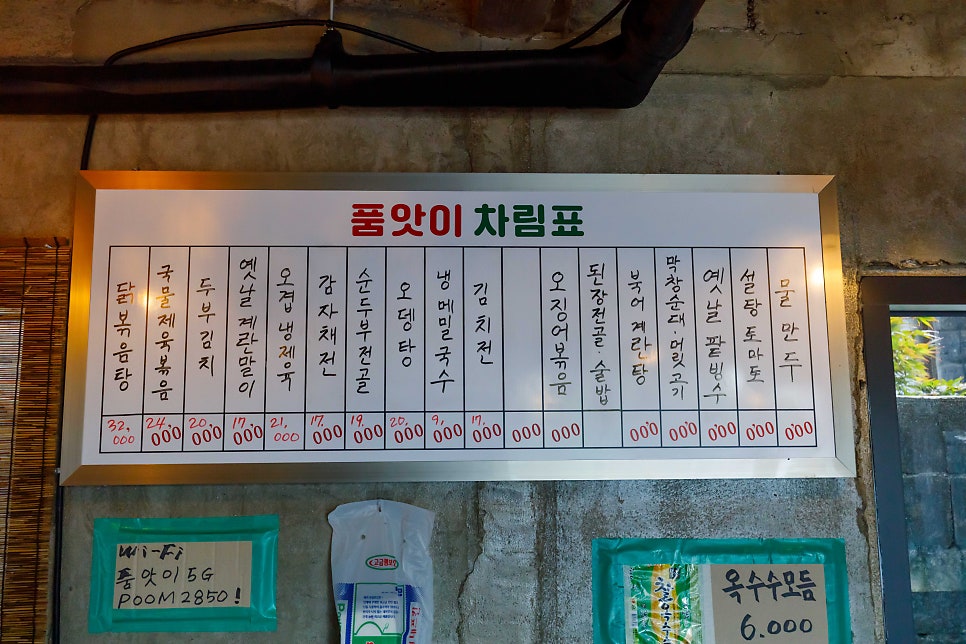 품앗이 차림표
닭볶음탕 32,000
국물제육볶음 24,000
두부김치 20,000
옛날계란말이 17,000
오겹냉제육 21,000
감자채전 17,000
순두부전골 19,000
오뎅탕 20,000
냉메밀국수 9,000
김치전 17,000
000
오징어볶음 000
된장전골·술밥
북어계란탕 000
막창순대·머릿고기 000
옛날팥빙수 000
설탕토마토 000
물만두 000
Wi-Fi
품앗이 5G
POOM2850!
옥수수모듬
6.000